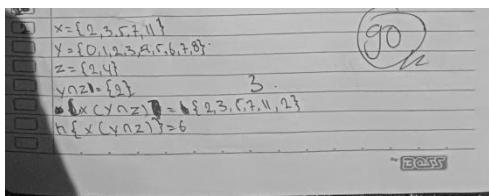 2 x = {2,3,5,7,11}
y = {0,1,2,3,4,5,6,7,8}
z = {2,4}
y∩z = {2}
3
{x(y∩z)} = {2,3,5,7,11,2}
n{x(y∩z)} = 6
90
BOSS